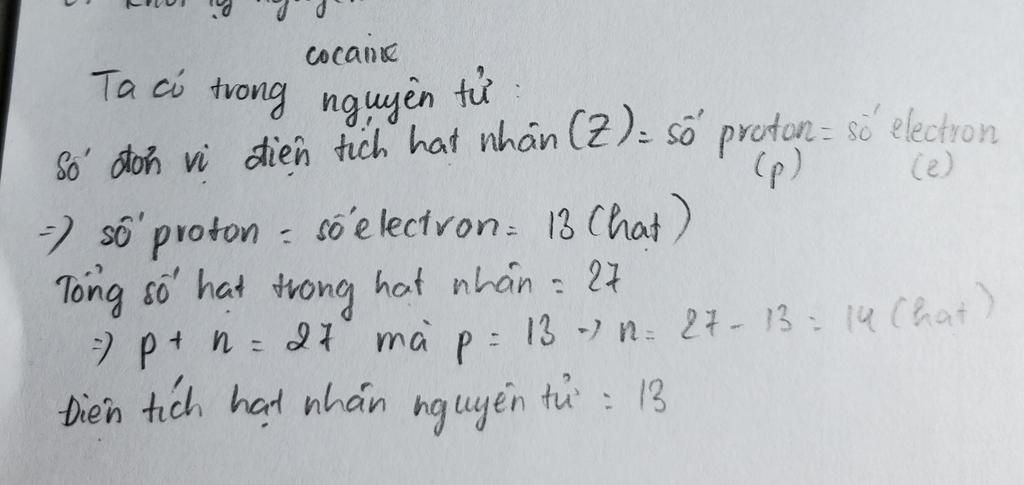 cocaine
Ta có trong nguyên tử :
Số đơn vị điện tích hạt nhân (Z) = số proton = số electron
(p) (e)
=> số proton = số electron = 13 (hạt)
Tổng số hạt trong hạt nhân = 27
=> p + n = 27 mà p = 13 -> n = 27 - 13 = 14 (hạt)
Điện tích hạt nhân nguyên tử : 13